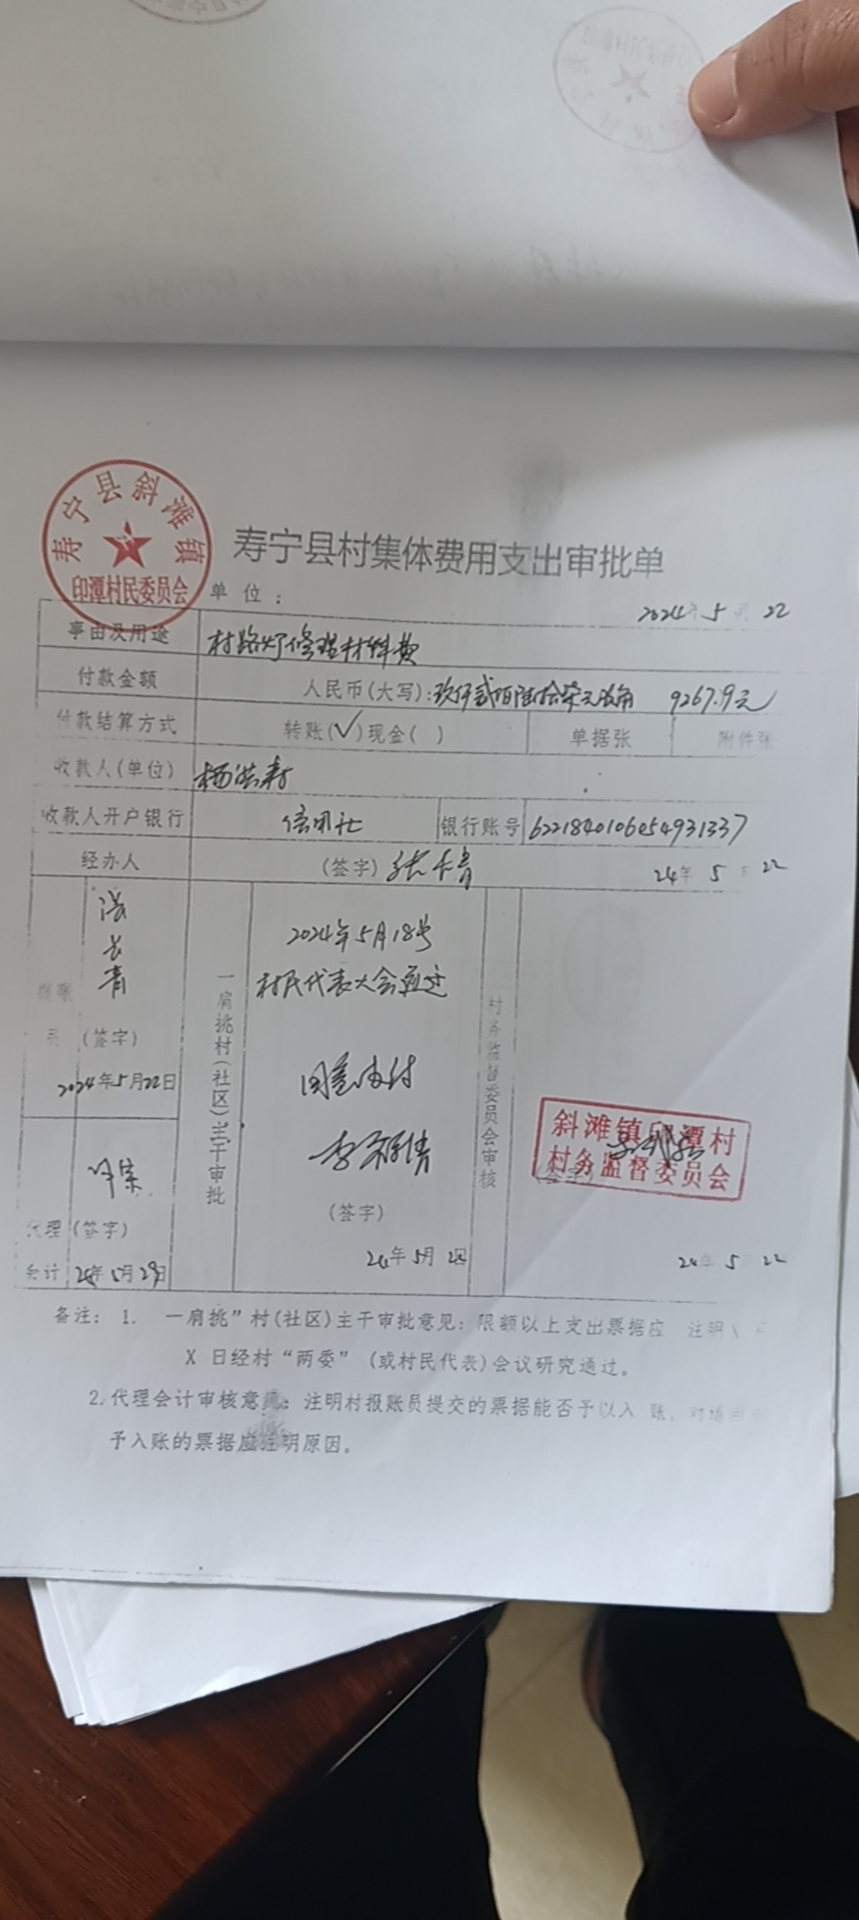 寿宁县斜滩镇
印潭村民委员会
寿宁县村集体费用支出审批单
单位：
2024年5月22
事由及用途 村路灯修理材料费
付款金额 人民币(大写): 玖仟贰佰陆拾柒元玖角 9267.9元
付款结算方式 转账(√)现金( ) 单据张 附件张
收款人(单位) 杨洪寿
收款人开户银行 信用社 银行账号 6221840106054931337
经办人 (签字) 张长青 24年5月22
张长青
报账员 (签字)
2024年5月22日
代理会计 (签字)
24年5月29日
一肩挑村(社区)主干审批
2024年5月18号
村民代表大会通过
同意支付
(签字)
24年5月22
村务监督委员会审核
斜滩镇印潭村
村务监督委员会
(签字)
24年5月22
备注: 1. 一肩挑”村(社区)主干审批意见: 限额以上支出票据应 注明
X 日经村“两委”(或村民代表)会议研究通过。
2.代理会计审核意见: 注明村报账员提交的票据能否予以入 账, 对
予入账的票据应注明原因。